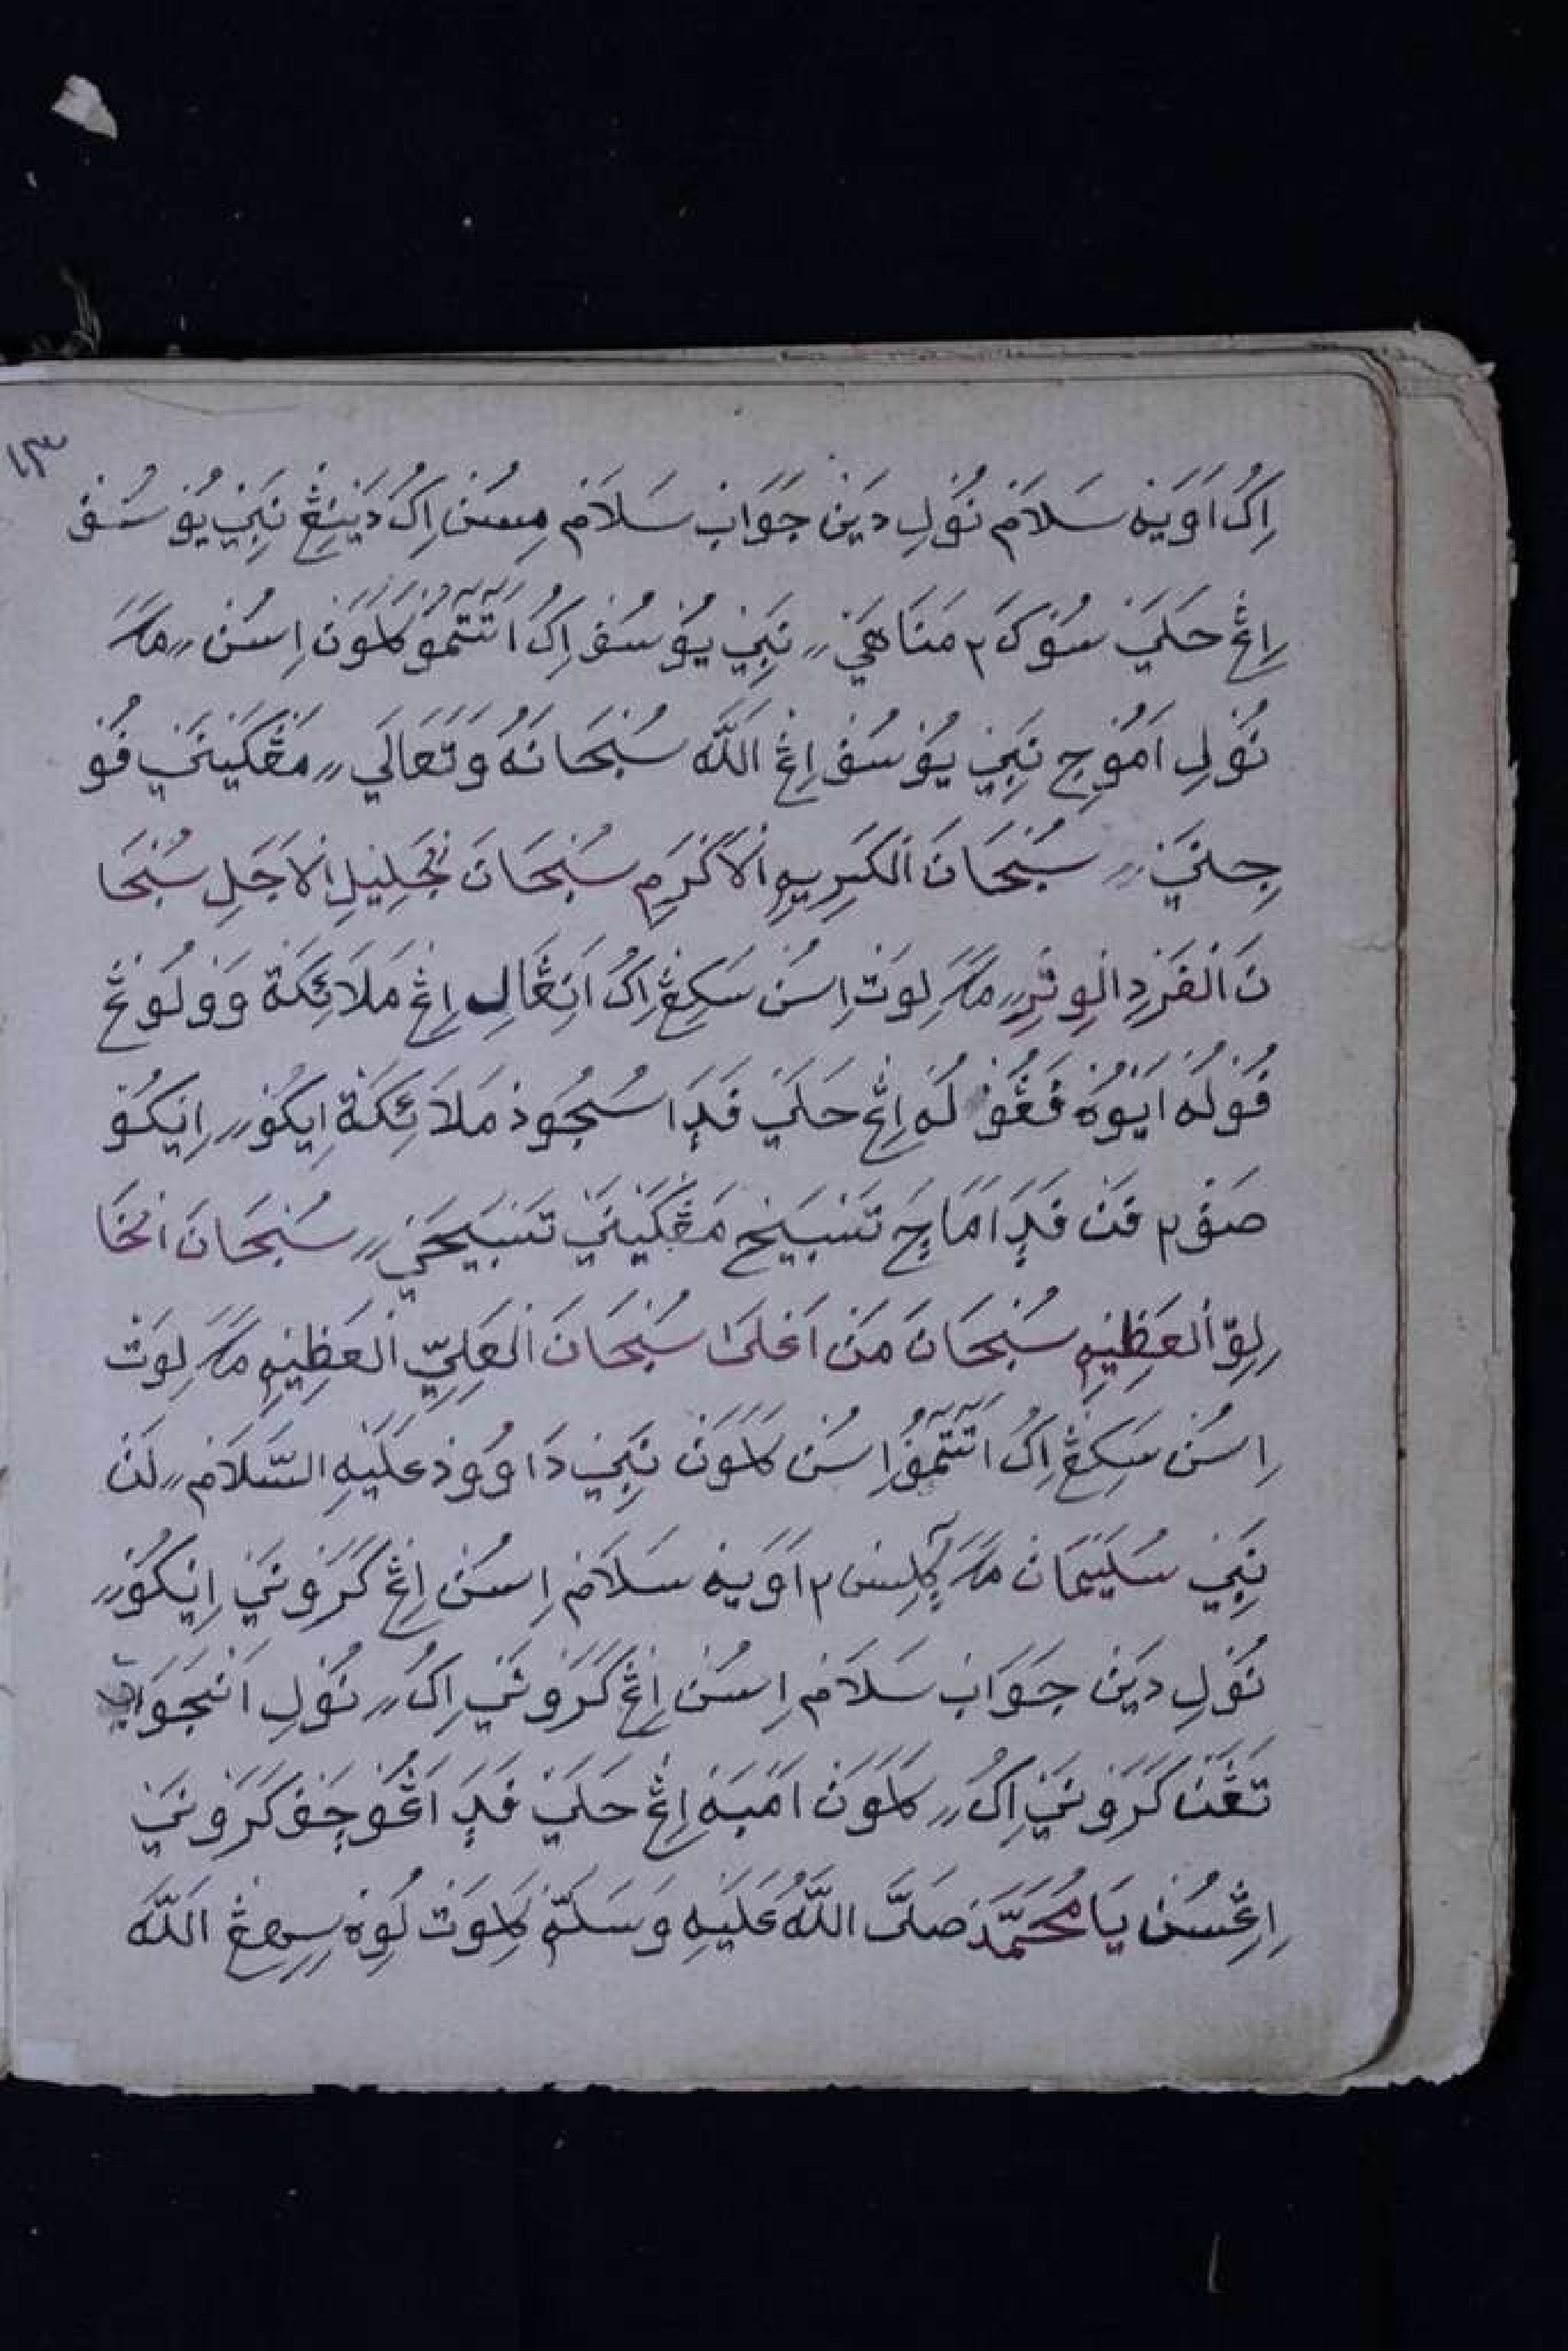 ١٣
اِكُ اَوَيْهْ سَلَامْ نُوْلِ دَيْنْ جَوَابْ سَلَامْ مِسُنْ اِكُ دَيْنِڠْ نَبِيْ يُوْسُفْ
اِڠْ حَلَيْ سُوْكَ٢ مَنَاهَيْ ،، نَبِيْ يُوْسُفْ اِكُ اَتَتَمُوْ كَلَوَنْ اِسُنْ ،، مَكَ
نُوْلِ اَمُوْجِ نَبِيْ يُوْسُفْ اِڠْ اَللَّه سُبْحَانَهُ وَتَعَالَي ،، مَڠْكَيْنَيْ فُوْ
جِنَيْ ،، سُبْحَانَ اَلْكَرِيمِ اْلاَكْرَمِ سُبْحَانَ لْجَلِيْلِ اْلاَجَلِ سُبْحَا
نَ اَلْفَرْدِ الْوِتْرِ ،، مَكَ لِوَتْ اِسُنْ سَكِڠْ اِكُ اَنِڠَالِ اِڠْ مَلَائِكَةْ وَوْلُوْڠْ
فُوْلُهْ اَيْوُهْ فُڠُوْلُهْ اِڠْ حَلَيْ فَدَا سُجُوْدْ مَلَائِكَةْ اِيْكُوْ ،، اِيْكُوْ
صَفْ٢ فَنْ فَدَا مَاجَ تَسْبَيْحْ مَڠْكَيْنَيْ تَسْبَيْحَيْ ،، سُبْحَانَ الْخَا
لِقِ اْلعَظِيْمِ سُبْحَانَ مَنْ اَعْلَىْ سُبْحَانَ اْلعَلِيِّ اْلعَظِيْمِ مَكَ لِوَتْ
اِسُنْ سَكِڠْ اِكُ اَتَتَمُوْ اِسُنْ كَلَوَنْ نَبِيْ دَاوُوْدْ عَلَيْهِ السَّلَامْ ،، لَنْ
نَبِيْ سُلَيْمَانْ مَكَ اَوَيْهْ سَلَامْ اِسُنْ اِڠْ كَرَوْنَيْ اِيْكُوْ ،،
نُوْلِ دَيْنْ جَوَابْ سَلَامْ اِسُنْ اِڠْ كَرَوْنَيْ اِكُ ،، نُوْلِ اَنْجَوَابْ
تَڠَنْ كَرَوْنَيْ اِكُ ،، كَلَوَنْ اَمْبَهْ اِڠْ حَلَيْ فَدَ اَڠُوْجَفْ كَرَوْنَيْ
اِڠْسُنْ يَا مُحَمَّدْ صَلَّى اللَّهُ عَلَيْهِ وَسَلَّمْ كَلِوَتْ لُوِهْ سِهِڠْ اللَّه